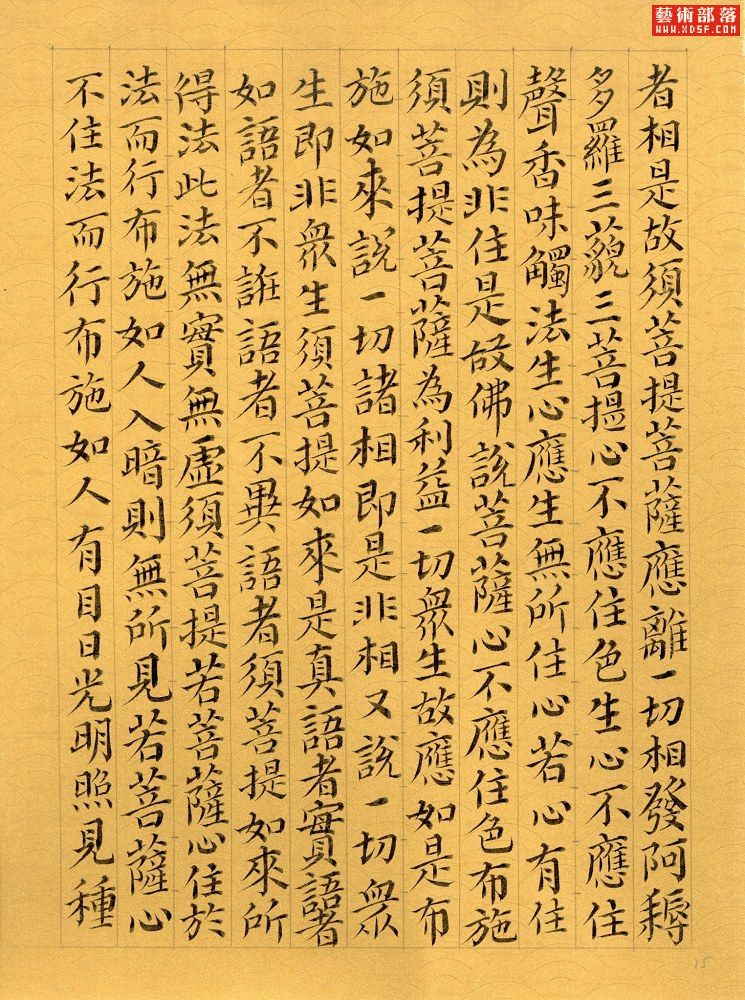 藝術部落
www.XDSF.com
者相是故須菩提菩薩應離一切相發阿耨
多羅三藐三菩提心不應住色生心不應住
聲香味觸法生心應生無所住心若心有住
則為非住是故佛說菩薩心不應住色布施
須菩提菩薩為利益一切眾生故應如是布
施如來說一切諸相即是非相又說一切眾
生即非眾生須菩提如來是真語者實語者
如語者不誑語者不異語者須菩提如來所
得法此法無實無虛須菩提若菩薩心住於
法而行布施如人入暗則無所見若菩薩心
不住法而行布施如人有目日光明照見種
15